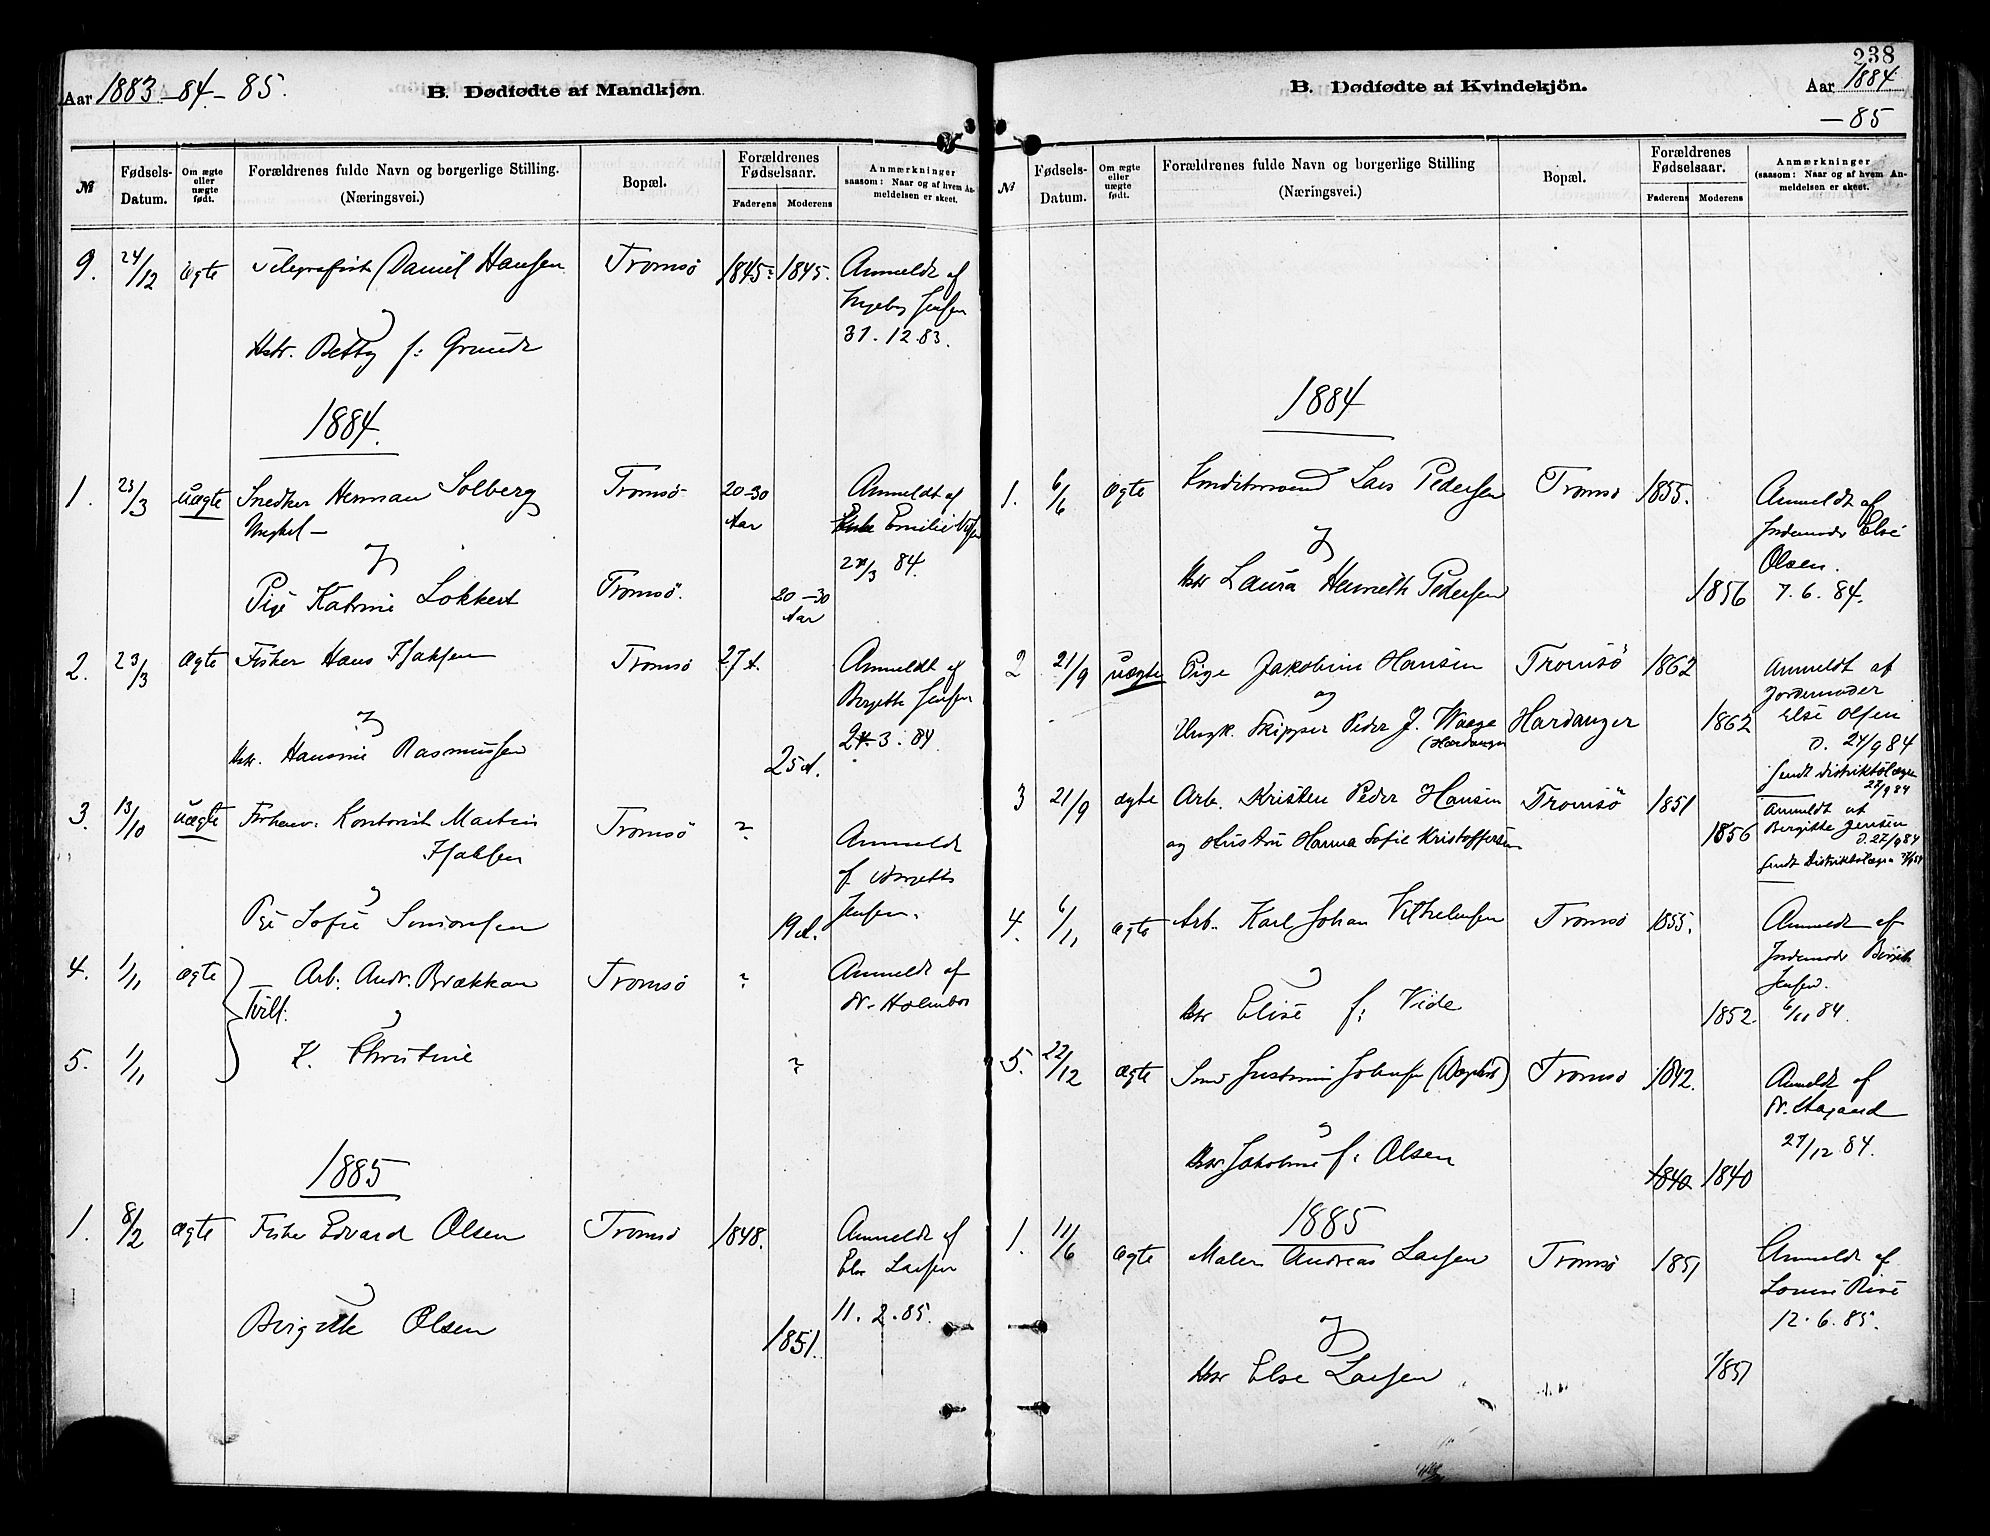 Aar 1883-84-85.
B. Dødfødte af Mandkjøn
№
Fødsels-
Datum.
Om ægte
eller
uægte
født.
Forældrenes fulde Navn og borgerlige Stilling.
(Næringsvei.)
Bopæl.
Forældrenes
Fødselsaar.
Faderens
Moderens
Anmærkninger
saasom: Naar og af hvem An-
meldelsen er skeet.
9. 24/12 ægte Telegrafist Daniel Hansen Tromsø 1845. 1845. Anmeldt af
Jensen
31.12.83.
Hstr. Betty f:
1884.
1. 23/3 uægte Snedker Herman Solberg Tromsø 20-30 Aar Anmeldt af
Ungkal- Emilie
84.
og
Pige Katrine Lokkert Tromsø. 20-30 Aar
2. 23/3 ægte Fisker Hans Isaksen Tromsø 27 A. Anmeldt af
Bergitte Jensen
3.84
og
Hstr. Hansine Rasmussen 25 A.
3. 13/10 uægte Forhenv. Kontorist Martin Tromsø ?
Isaksen
Anmeldt
af
Jensen.
og
Pige Sofie Simonsen 19 A.
4. 1/11 ægte Arb: Andr. Brækkan Tromsø ? Anmeldt af
Tvill: Dr. Holmboe
og
5. 1/11 K. Christine ?
1885
1. 8/2 ægte Fisker Edvard Olsen Tromsø 1848. Anmeldt af
Else Larsen
11.2.85.
og
Birgitte Olsen 1851.
238
B. Dødfødte af Kvindekjön.
Aar 1884
-85
№
Fødsels-
Datum.
Om ægte
eller
uægte
født.
Forældrenes fulde Navn og borgerlige Stilling
(Næringsvei.)
Bopæl.
Forældrenes
Fødselsaar.
Faderens
Moderens
Anmærkninger
(saasom: Naar og af hvem An-
meldelsen er skeet.
1884
1. 6/6 ægte Konditorsvend Lars Pedersen Tromsø 1855. Anmeldt af
Jordemoder Else
Olsen.
7.6.84.
og
Hstr Laura Henriette Pedersen 1856
2 21/9 uægte Pige Jakobine Hansen Tromsø 1862 Anmeldt af
Jordemoder
Else Olsen
D. 24/9 84
Sendt Distriktslægen
27/9 84
og
Ungk. Skipper Peder J. Waage Hardanger 1862
(Hardanger
3 21/9 ægte Arb. Kristen Peder Hansen Tromsø 1851 Anmeldt af
Bergitte Jensen
D. 27/9 84
Sendt Distriktslægen
og Hustru Hanna Sofie Kristoffersen 1856
4. 6/11 ægte Arb. Karl Johan Vilhelmsen Tromsø 1855. Anmeldt af
Jordemoder
Jensen.
6/11 84
og
Hstr Elise f: Vide 1852.
5. 22/12 ægte Smed Johnsen Tromsø 1842. Anmeldt af
Dr. Aagaard
27/12 84.
og
Hstr. Jakobine f: Olsen 1840 1840
1885
1. 11/6 ægte Maler Andreas Larsen Tromsø 1851 Anmeldt af
Louise Riise
12.6.85.
og
Hstr Else Larsen 1851